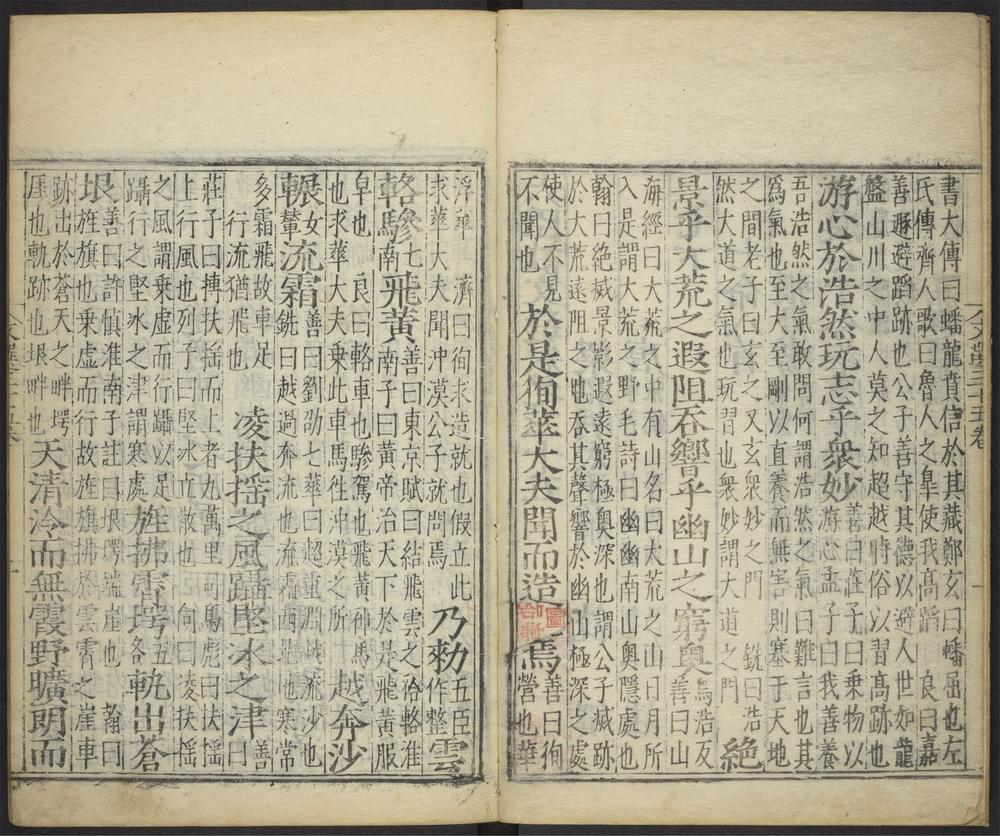 書大傳曰蟠龍賁信於其藏鄭玄曰蟠屈也左
氏傳齊人歌曰魯人之臯使我髙蹈 良曰嘉
善遯避蹈跡也公子善守其德以避人世如龍
盤山川之中人莫之知超越時俗以習髙跡也
游心於浩然玩志乎衆妙善曰莊子曰乗物以
游心孟子曰我善養
吾浩然之氣敢問何謂浩然之氣曰難言也其
爲氣也至大至剛以直養而無害則塞于天地
之間老子曰玄之又玄衆妙之門 銑曰浩
然大道之氣也玩習也衆妙謂大道之門絶
景乎大荒之遐阻吞響乎幽山之窮奥烏浩反善曰山
海經曰大荒之中有山名曰大荒之山日月所
入是謂大荒之野毛詩曰幽幽南山奥隱處也
翰曰絶滅景影遐逺窮極奥深也謂公子滅跡
於大荒逺阻之地吞其聲響於幽山極深之處
使人不見
不聞也於是徇華大夫聞而造焉善曰徇
營也華
文選三十五卷
浮華 濟曰徇求造就也假立此
求華大夫聞沖漠公子就問焉乃勑五臣作整雲
輅驂七南飛黄善曰東京賦曰結飛雲之袷輅淮
南子曰黄帝治天下於是飛黄服
皁也 良曰輅車也驂駕也飛黄神馬
也求華大夫乗此車馬徃沖漠之所越奔沙
輾女輦流霜善曰劉劭七華曰超重淵越流沙也
銑曰越過奔流也流霜西北地寒常
多霜飛故車足
行流猶飛也凌扶摇之風躡堅冰之津善曰
莊子曰摶扶摇而上者九萬里司馬彪曰扶摇
上行風也列子曰堅冰立散也 向曰凌扶摇
之風謂乗虚而行躡以足
躡行之堅冰之津謂寒處旌拂霄堮五各軌出蒼
垠善曰許慎淮南子註曰垠堮端崖也 翰曰
旌旗也乗虚而行故旌旗拂於雲霄之崖車
跡出於蒼天之畔堮
厓也軌跡也垠畔也天清泠而無霞野曠朗而